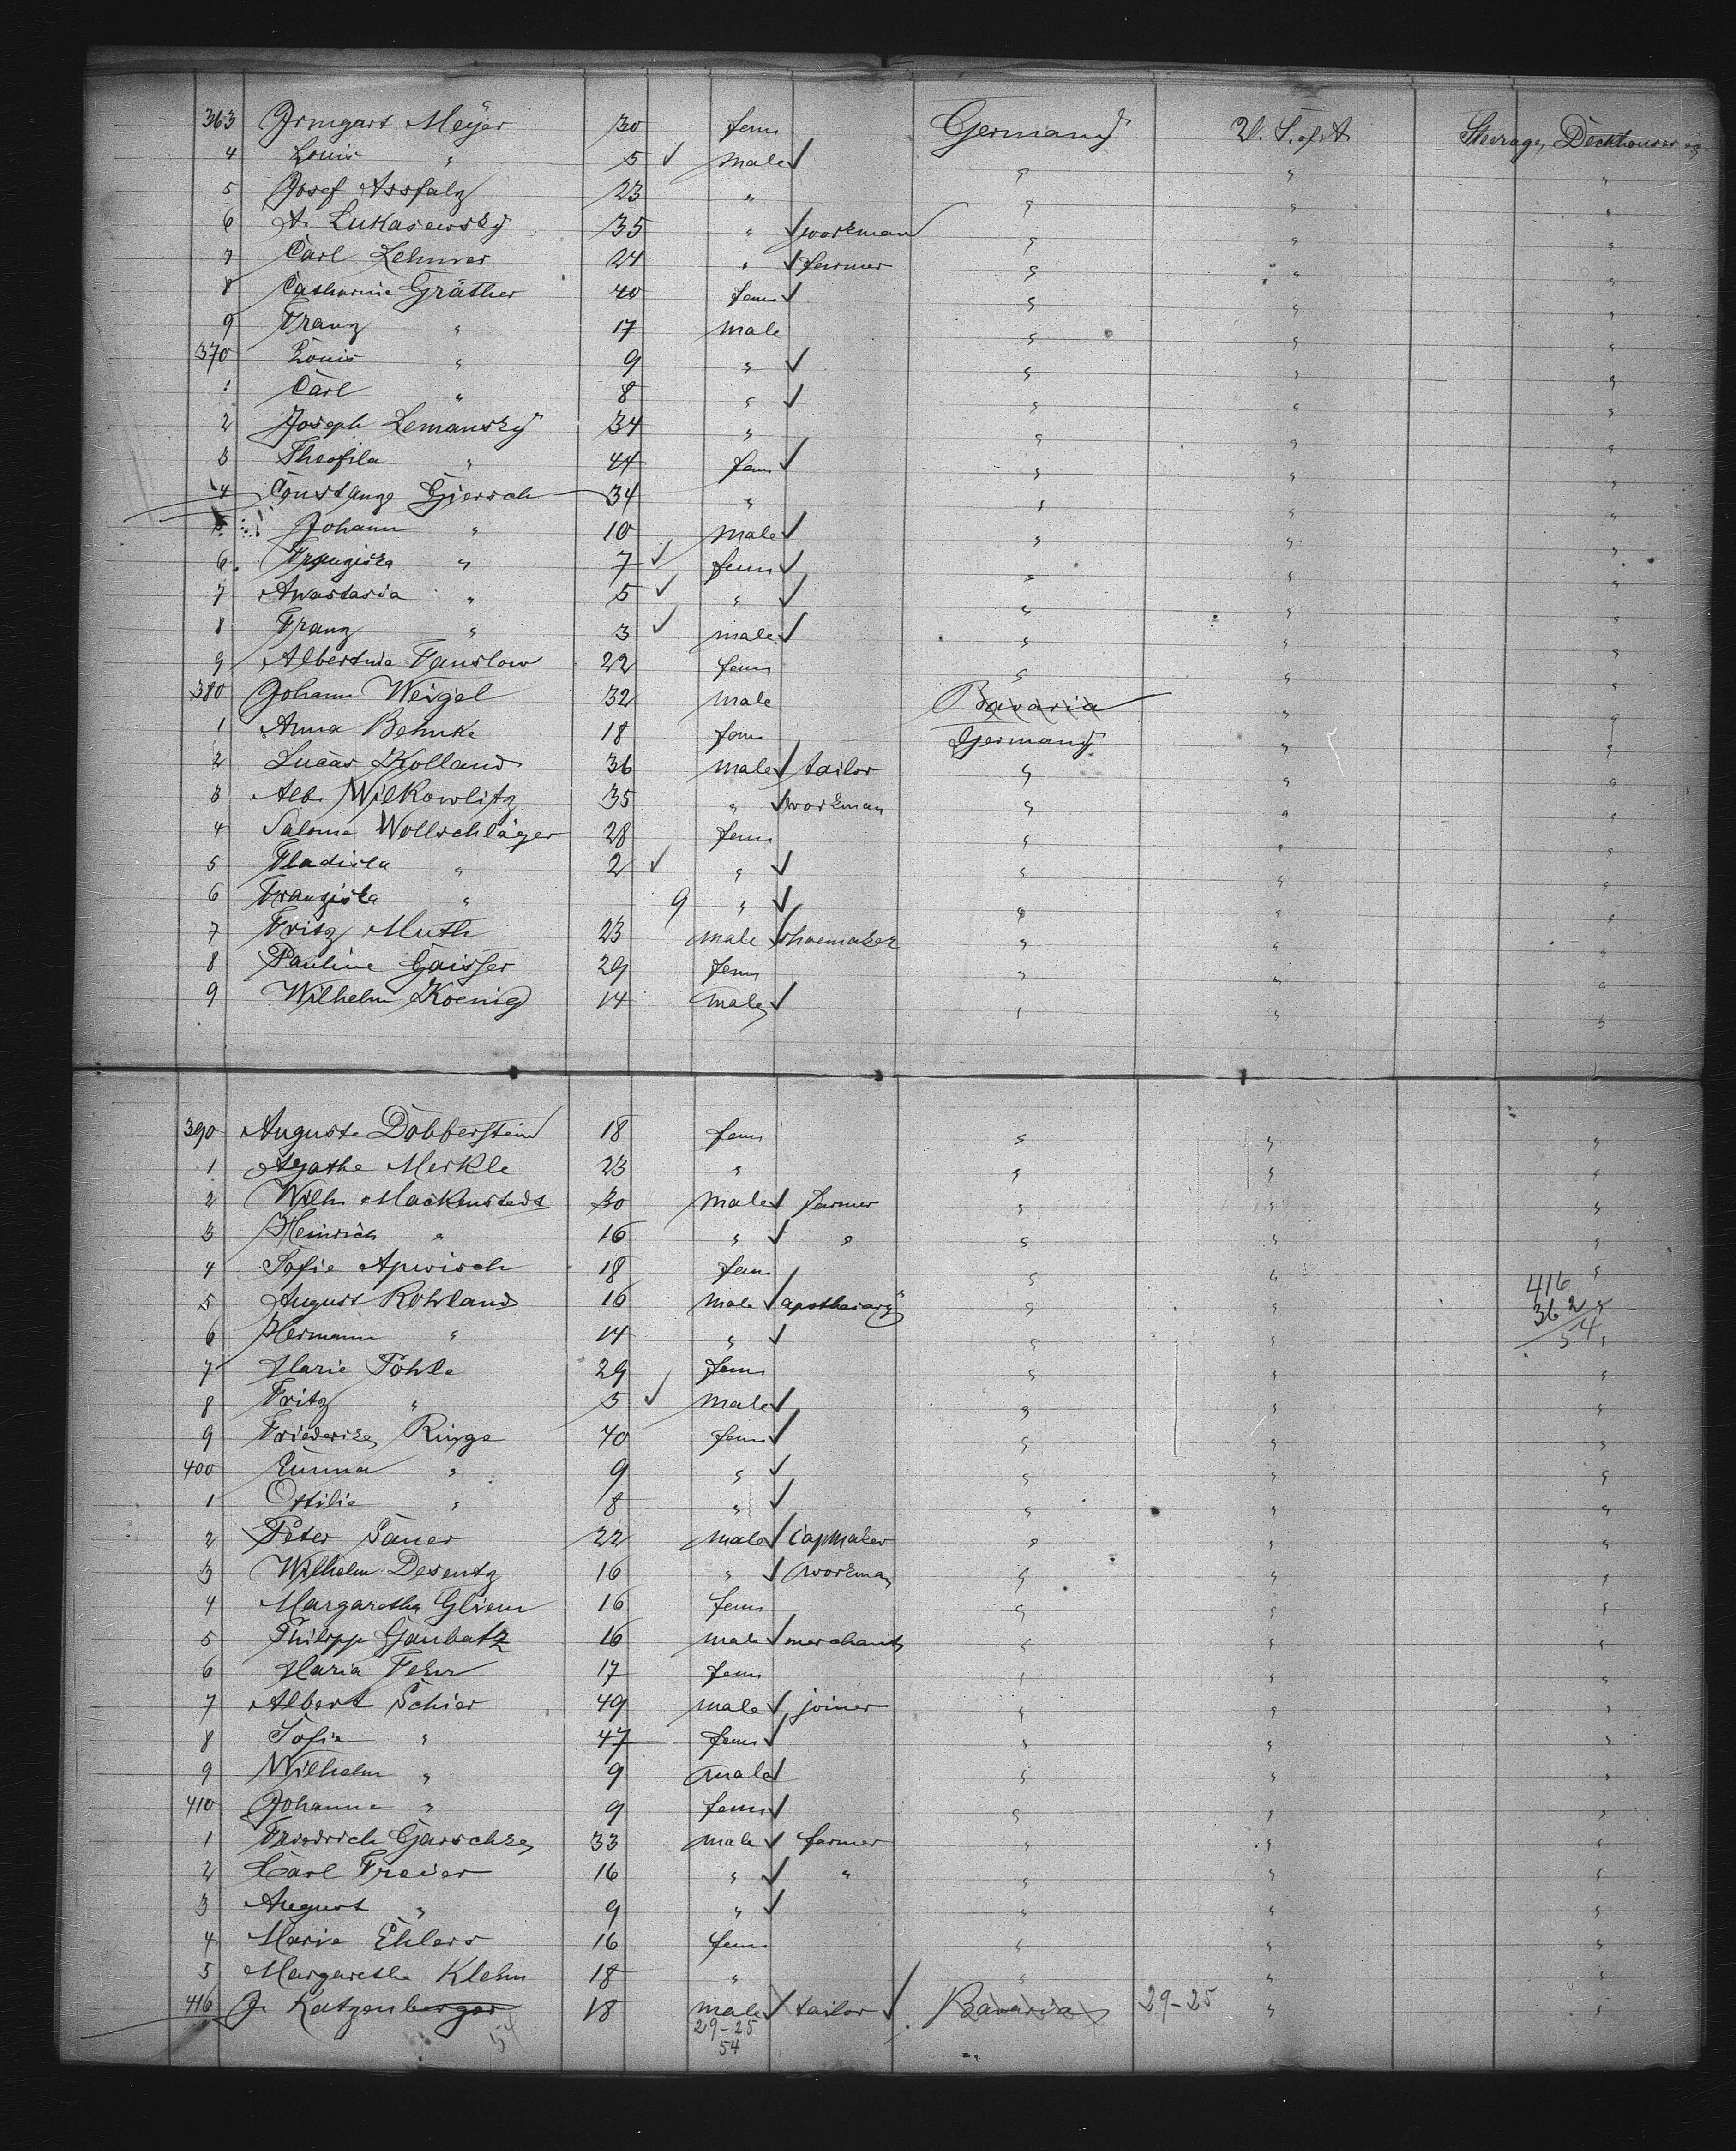 363 Irmgart Meyer 30 fem Germany U. S. of A Steerage, Deckhouse
4 Louis " 5 ✓ male ✓ " " "
5 Josef Assfalg 23 " " " "
6 A. Lukasewsky 35 " ✓ workman " " "
7 Carl Lehmer 24 " ✓ farmer " " "
8 Catharine Gräther 40 fem ✓ " " "
9 Franz " 17 male " " "
370 Louis " 9 " ✓ " " "
1 Carl " 8 " ✓ " " "
2 Joseph Lemansky 34 " " " "
3 Theofila " 44 fem ✓ " " "
4 Constanze Giersch 34 " " " "
5 Johann " 10 male ✓ " " "
6 Franziska " 7 ✓ fem ✓ " " "
7 Anastasia " 5 ✓ " ✓ " " "
8 Franz " 3 ✓ male ✓ " " "
9 Albertine Fanslow 22 fem " " "
380 Johann Weigel 32 male Bavaria " "
1 Anna Behnke 18 fem Germany " "
2 Lucas Kolland 36 male ✓ tailor " " "
3 Alb. Wilkowlitz 35 " ✓ workman " " "
4 Saloma Wollschläger 28 fem " " "
5 Fladisla " 2 ✓ " ✓ " " "
6 Franziska " 9 " ✓ " " "
7 Fritz Muth 23 male ✓ shoemaker " " "
8 Pauline Gaisser 29 fem " " "
9 Wilhelm Koenig 14 male ✓ " " "
390 Auguste Dobberstein 18 fem " " "
1 Agathe Merkle 23 " " " "
2 Wilh. Mackenstedt 30 male ✓ farmer " " "
3 Heinrich " 16 " ✓ " " " "
4 Sofie Apwisch 18 fem " " "
416
5 August Rohland 16 male ✓ apothecary " " "
362
6 Hermann " 14 " ✓ " " "
54
7 Marie Pohle 29 fem " " "
8 Fritz " 5 ✓ male ✓ " " "
9 Friederike Ringe 40 fem ✓ " " "
400 Emma " 9 " ✓ " " "
1 Ottilie " 8 " ✓ " " "
2 Peter Sauer 22 male ✓ Capmaker " " "
3 Wilhelm Desentz 16 " ✓ workman " " "
4 Margaretha Gliem 16 fem " " "
5 Philipp Gaubatz 16 male ✓ merchant " " "
6 Maria Fehr 17 fem " " "
7 Albert Schier 49 male ✓ joiner " " "
8 Sofie " 47 fem ✓ " " "
9 Wilhelm " 9 male ✓ " " "
410 Johanne " 9 fem ✓ " " "
1 Friedrich Garschke 33 male ✓ farmer " " "
2 Carl Freier 16 " ✓ " " " "
3 August " 9 " ✓ " " "
4 Marie Ehlers 16 fem " " "
5 Margarethe Klehn 18 " " " "
416 J. Katzenberger 18 male ✓ tailor ✓ Bavaria 29-25 " "
54 29-25
54